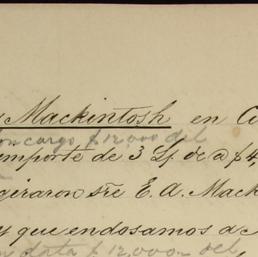 Mackintosh en
con cargo $12,000 del
importe de 3 L/ de a $4,
giraron s/re E. A. Mack
y que endosamos a
data $12,000 del